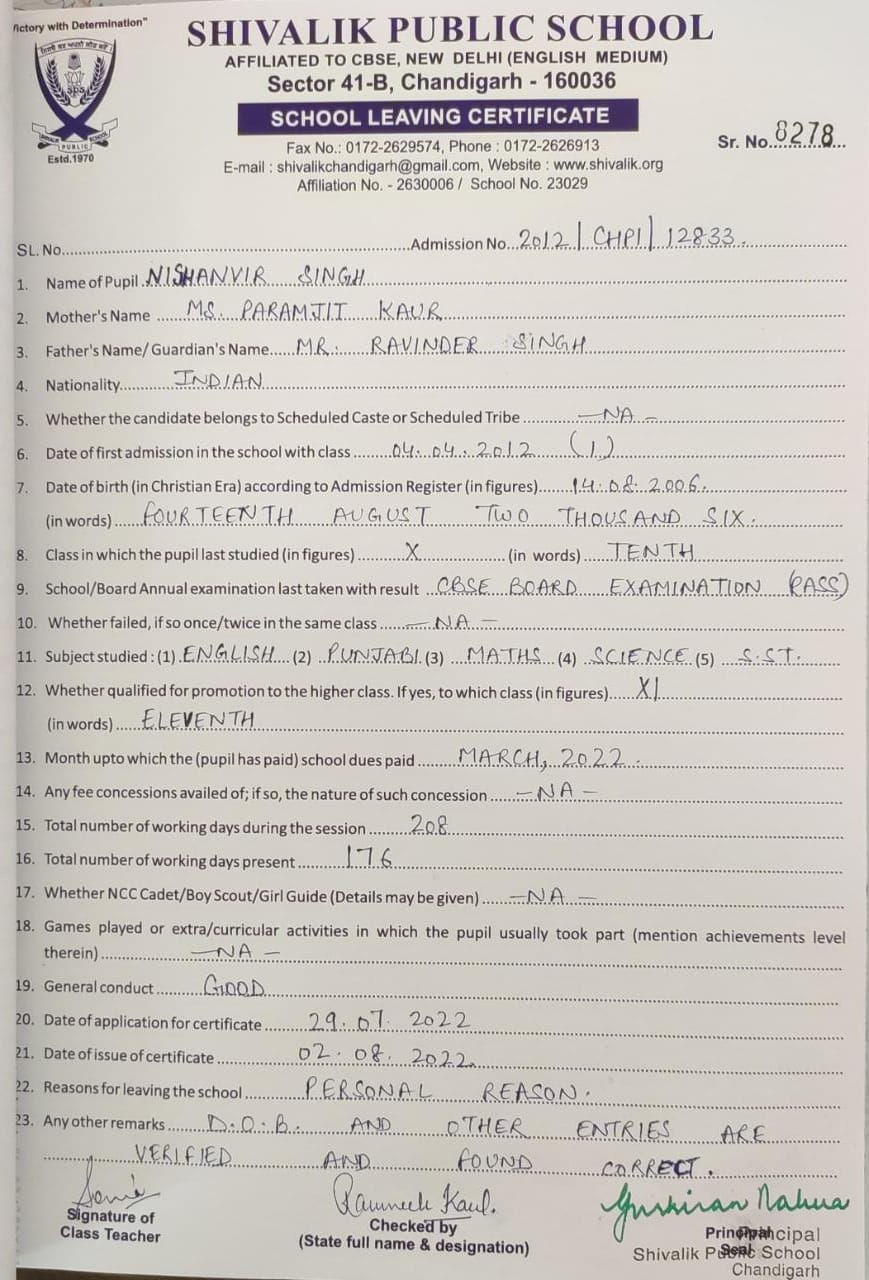 Victory with Determination"
SHIVALIK PUBLIC SCHOOL
AFFILIATED TO CBSE, NEW DELHI (ENGLISH MEDIUM)
Sector 41-B, Chandigarh - 160036
SCHOOL LEAVING CERTIFICATE
sps
SHIVALIK PUBLIC SCHOOL
Estd.1970
Fax No.: 0172-2629574, Phone : 0172-2626913
Sr. No. 8278
E-mail : shivalikchandigarh@gmail.com, Website : www.shivalik.org
Affiliation No. - 2630006 / School No. 23029
SL. No. Admission No. 2012/CHPI/12833
1. Name of Pupil NISHANVIR SINGH
2. Mother's Name MS. PARAMJIT KAUR
3. Father's Name/ Guardian's Name MR. RAVINDER SINGH
4. Nationality INDIAN
5. Whether the candidate belongs to Scheduled Caste or Scheduled Tribe -NA-
6. Date of first admission in the school with class 04.04.2012 (I)
7. Date of birth (in Christian Era) according to Admission Register (in figures) 14.08.2006.
(in words) FOURTEENTH AUGUST TWO THOUSAND SIX.
8. Class in which the pupil last studied (in figures) X (in words) TENTH
9. School/Board Annual examination last taken with result CBSE BOARD EXAMINATION (PASS)
10. Whether failed, if so once/twice in the same class -NA-
11. Subject studied : (1) ENGLISH (2) PUNJABI (3) MATHS (4) SCIENCE (5) S.ST.
12. Whether qualified for promotion to the higher class. If yes, to which class (in figures) XI
(in words) ELEVENTH
13. Month upto which the (pupil has paid) school dues paid MARCH, 2022.
14. Any fee concessions availed of; if so, the nature of such concession -NA-
15. Total number of working days during the session 208
16. Total number of working days present 176
17. Whether NCC Cadet/Boy Scout/Girl Guide (Details may be given) -NA-
18. Games played or extra/curricular activities in which the pupil usually took part (mention achievements level
therein) -NA-
19. General conduct GOOD
20. Date of application for certificate 29.07.2022
21. Date of issue of certificate 02.08.2022.
22. Reasons for leaving the school PERSONAL REASON.
23. Any other remarks D.O.B. AND OTHER ENTRIES ARE
VERIFIED AND FOUND CORRECT.
Signature of
Class Teacher
Checked by
(State full name & designation)
Principal
Seal
Principal
Shivalik Public School
Chandigarh